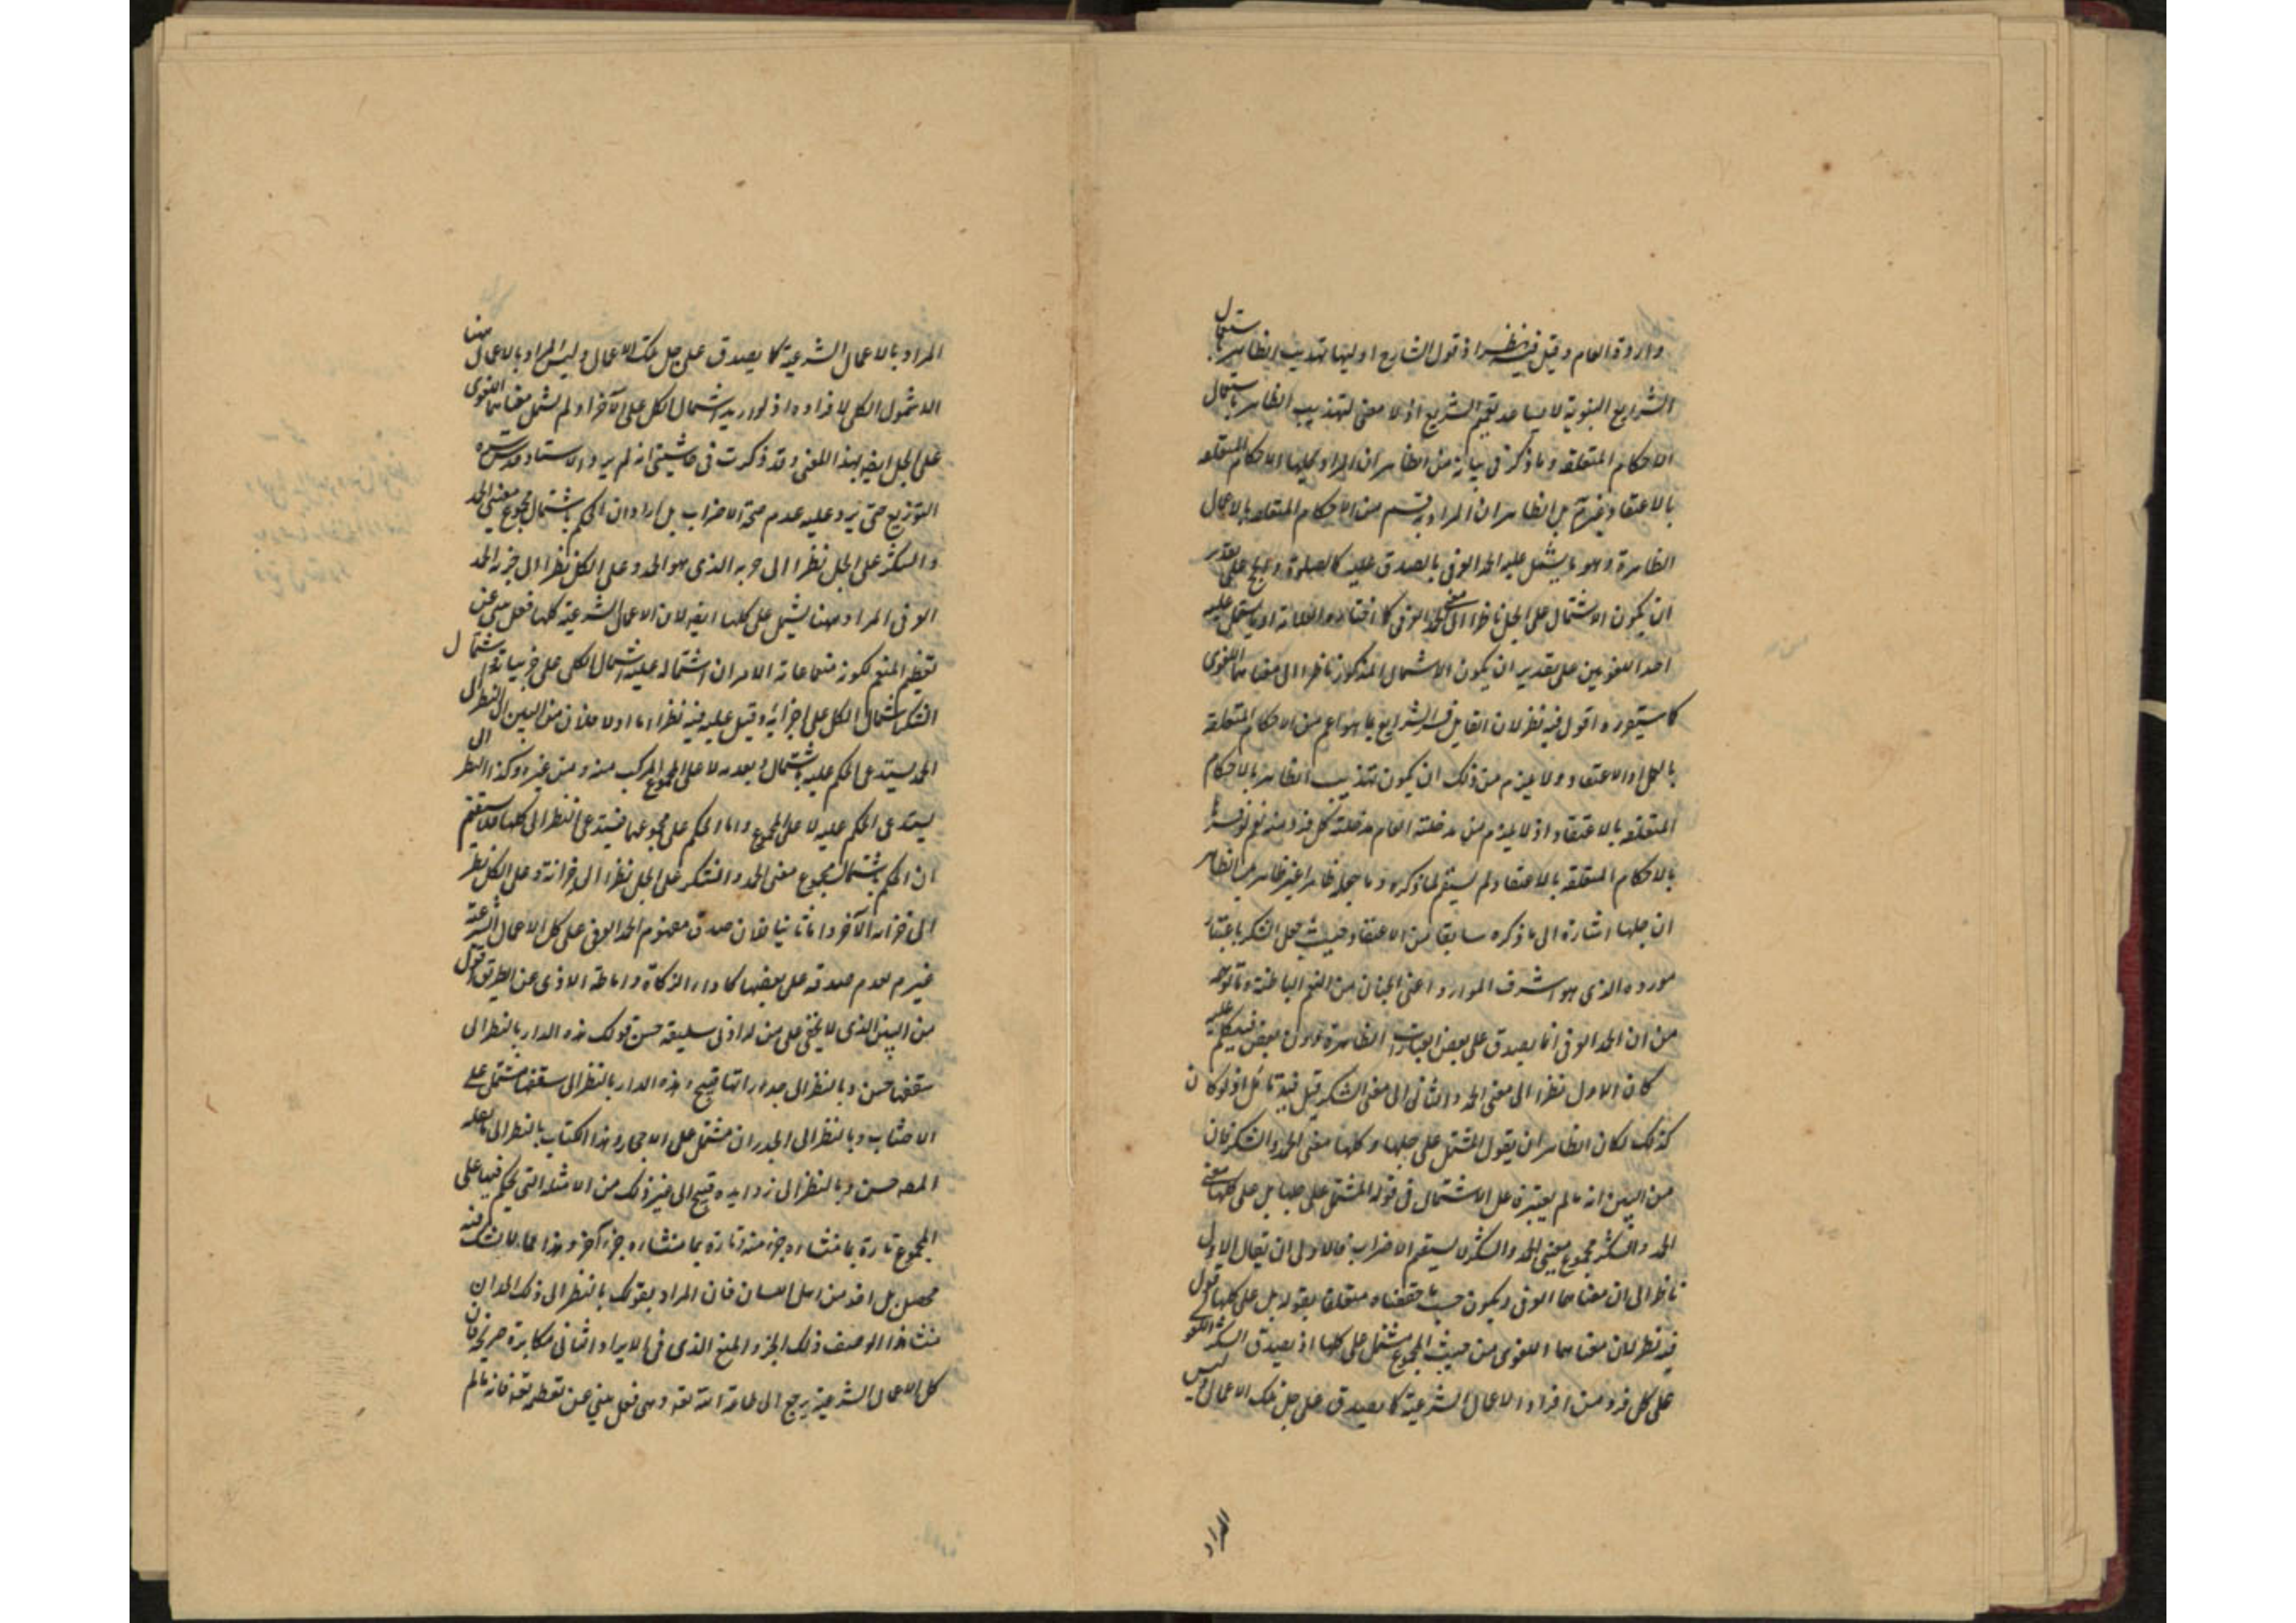 وارادة العام وقيل فيه نظر اذ قول الشارح اوليها تهذيب الظاهر باستعمال
الشرايع النبوية لا يساعد تعميم الشرايع اذ لا معنى لتهذيب الظاهر باستعمال
الاحكام المتعلقة وما ذكر في بيانه من الظاهر ان المراد بجلها الاحكام المتعلقة
بالاعتقاد بل الظاهر ان المراد به قسم من الاحكام المتعلقة بالاعمال
الظاهرة وهو ما يشتمل عليه الحمد العرفي بالصدق عليه كالصلوة والحج على تقدير
ان يكون الاشتمال على الجل ناظرا الى معنى الحمد العرفي كما اختاره العلامة او يشتمل عليه
احد اللغويين على تقدير ان يكون الاشتمال المذكور ناظرا الى معناهما اللغوي
كاستعوره اقول فيه نظر لان القايل فسر الشرايع بما هو اعم من الاحكام المتعلقة
بالعمل والاعتقاد ولا يلزم من ذلك ان يكون تهذيب الظاهر بالاحكام
المتعلقة بالاعتقاد اذ لا يلزم من مدخلية العام مدخلية كل فرد منه نعم لو فسر
بالاحكام المتعلقة بالاعتقاد لم يستقم لما ذكره وما جعله ظاهرا غير ظاهر بل الظاهر
ان جلها اشارة الى ما ذكره سابقا من الاعتقاد حيث جعل الشكر باعتبار
مورده الذي هو اشرف الموارد اعني الجنان من النعم الباطنة وما توهم
من ان الحمد العرفي انما يصدق على بعض العبادات الظاهرة دون بعض فيه كلام عليه
كان الاول نظرا الى معنى الحمد والثاني الى معنى الشكر قيل فيه تأمل اذ لو كان
كذلك لكان الظاهر ان يقول المشتمل على جلها وكلها معنى الحمد والشكر فان
من البين انه ما لم يعتبر فاعل الاشتمال في قوله المشتمل على جلها بل على كلها معنى
الحمد والشكر مجموع معنيي الحمد والشكر لا يستقيم الاضراب فالاولى ان يقال الاول
ناظر الى ان معناهما العرفي ويكون حسب ما حققناه متعلقا بقوله بل على كلها اقول
فيه نظر لان معناهما اللغوي من حيث المجموع مشتمل على كلها اذ يصدق الشكر اللغوي
على كل فرد من افراد الاعمال الشرعية كما يصدق على جل تلك الاعمال وليس
المراد
المراد بالاعمال الشرعية كما يصدق على جل تلك الاعمال وليس المراد بالاعمال ههنا
الا شمول الكلي لافراده اذ لو اريد اشتمال الكل على الآخر لم يشمل معناهما اللغوي
على الجل ايضا بهذا المعنى وقد ذكرت في حاشيتي انه لم يرد الاستاد قدس سره
التوزيع حتى يرد عليه عدم صحة الاضراب بل اراد ان الحكم باشتمال مجموع معنيي الحمد
والشكر على الجل نظرا الى جزئه الذي هو الحمد وعلى الكل نظرا الى جزئه الحمد
العرفي المراد ههنا يشتمل على كلها ايضا لان الاعمال الشرعية كلها فعل ينبئ عن
تعظيم المنعم لكونه منعما غاية الامر ان اشتماله عليه اشتمال الكلي على جزئياته واشتمال
الشكر اشتمال الكل على اجزائه وقيل عليه فيه نظر اما اولا فلان من البين ان النظر الى
الحمد يستدعي الحكم عليه باشتمال وبعده لا على المجموع المركب منه ومن غيره وكذا النظر الى
يستدعي الحكم عليه لا على المجموع واما الحكم على مجموعهما فيستدعي النظر الى كلها فلا يستقيم
ان الحكم باشتمال مجموع معنى الحمد والشكر على الجل نظرا الى جزئه وعلى الكل نظر
الى جزئه الآخر واما ثانيا فلان صدق مفهوم الحمد العرفي على كل الاعمال الشرعية
غير م لعدم صدقه على بعضها كاداء الزكاة واماطة الاذى عن الطريق اقول
من البين الذي لا يخفى على من له ادنى سليقة حسن قولك هذه الدار بالنظر الى
سقفها حسن وبالنظر الى جدرانها قبيح وهذه الدار بالنظر الى سقفها مشتمل على
الاخشاب وبالنظر الى الجدران مشتمل على الاحجار وهذا الكتاب بالنظر الى
حسن وبالنظر الى زوايده قبيح الى غير ذلك من الامثلة التي يحكم فيها على
المجموع تارة بما منشاؤه جزء منه وتارة بما منشاؤه جزء آخر وهذا مما لا يشك فيه
محصل بل احد من اهل اللسان فان المراد بقولك بالنظر الى ذلك الجزء ان
منشأ هذا الوصف ذلك الجزء والمنع الذي في الايراد الثاني مكابرة صريحة فان
كل الاعمال الشرعية يرجع الى طاعة الله تعه وهي فعل ينبئ عن تعظيمه تعه فانه ما لم